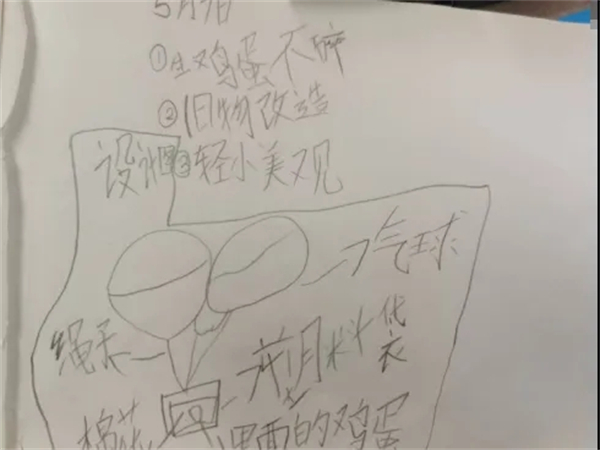 5月9日
①生鸡蛋不碎
②旧物改造
设计图③轻小美观
气球
绳子
塑料袋
棉花
里面的鸡蛋